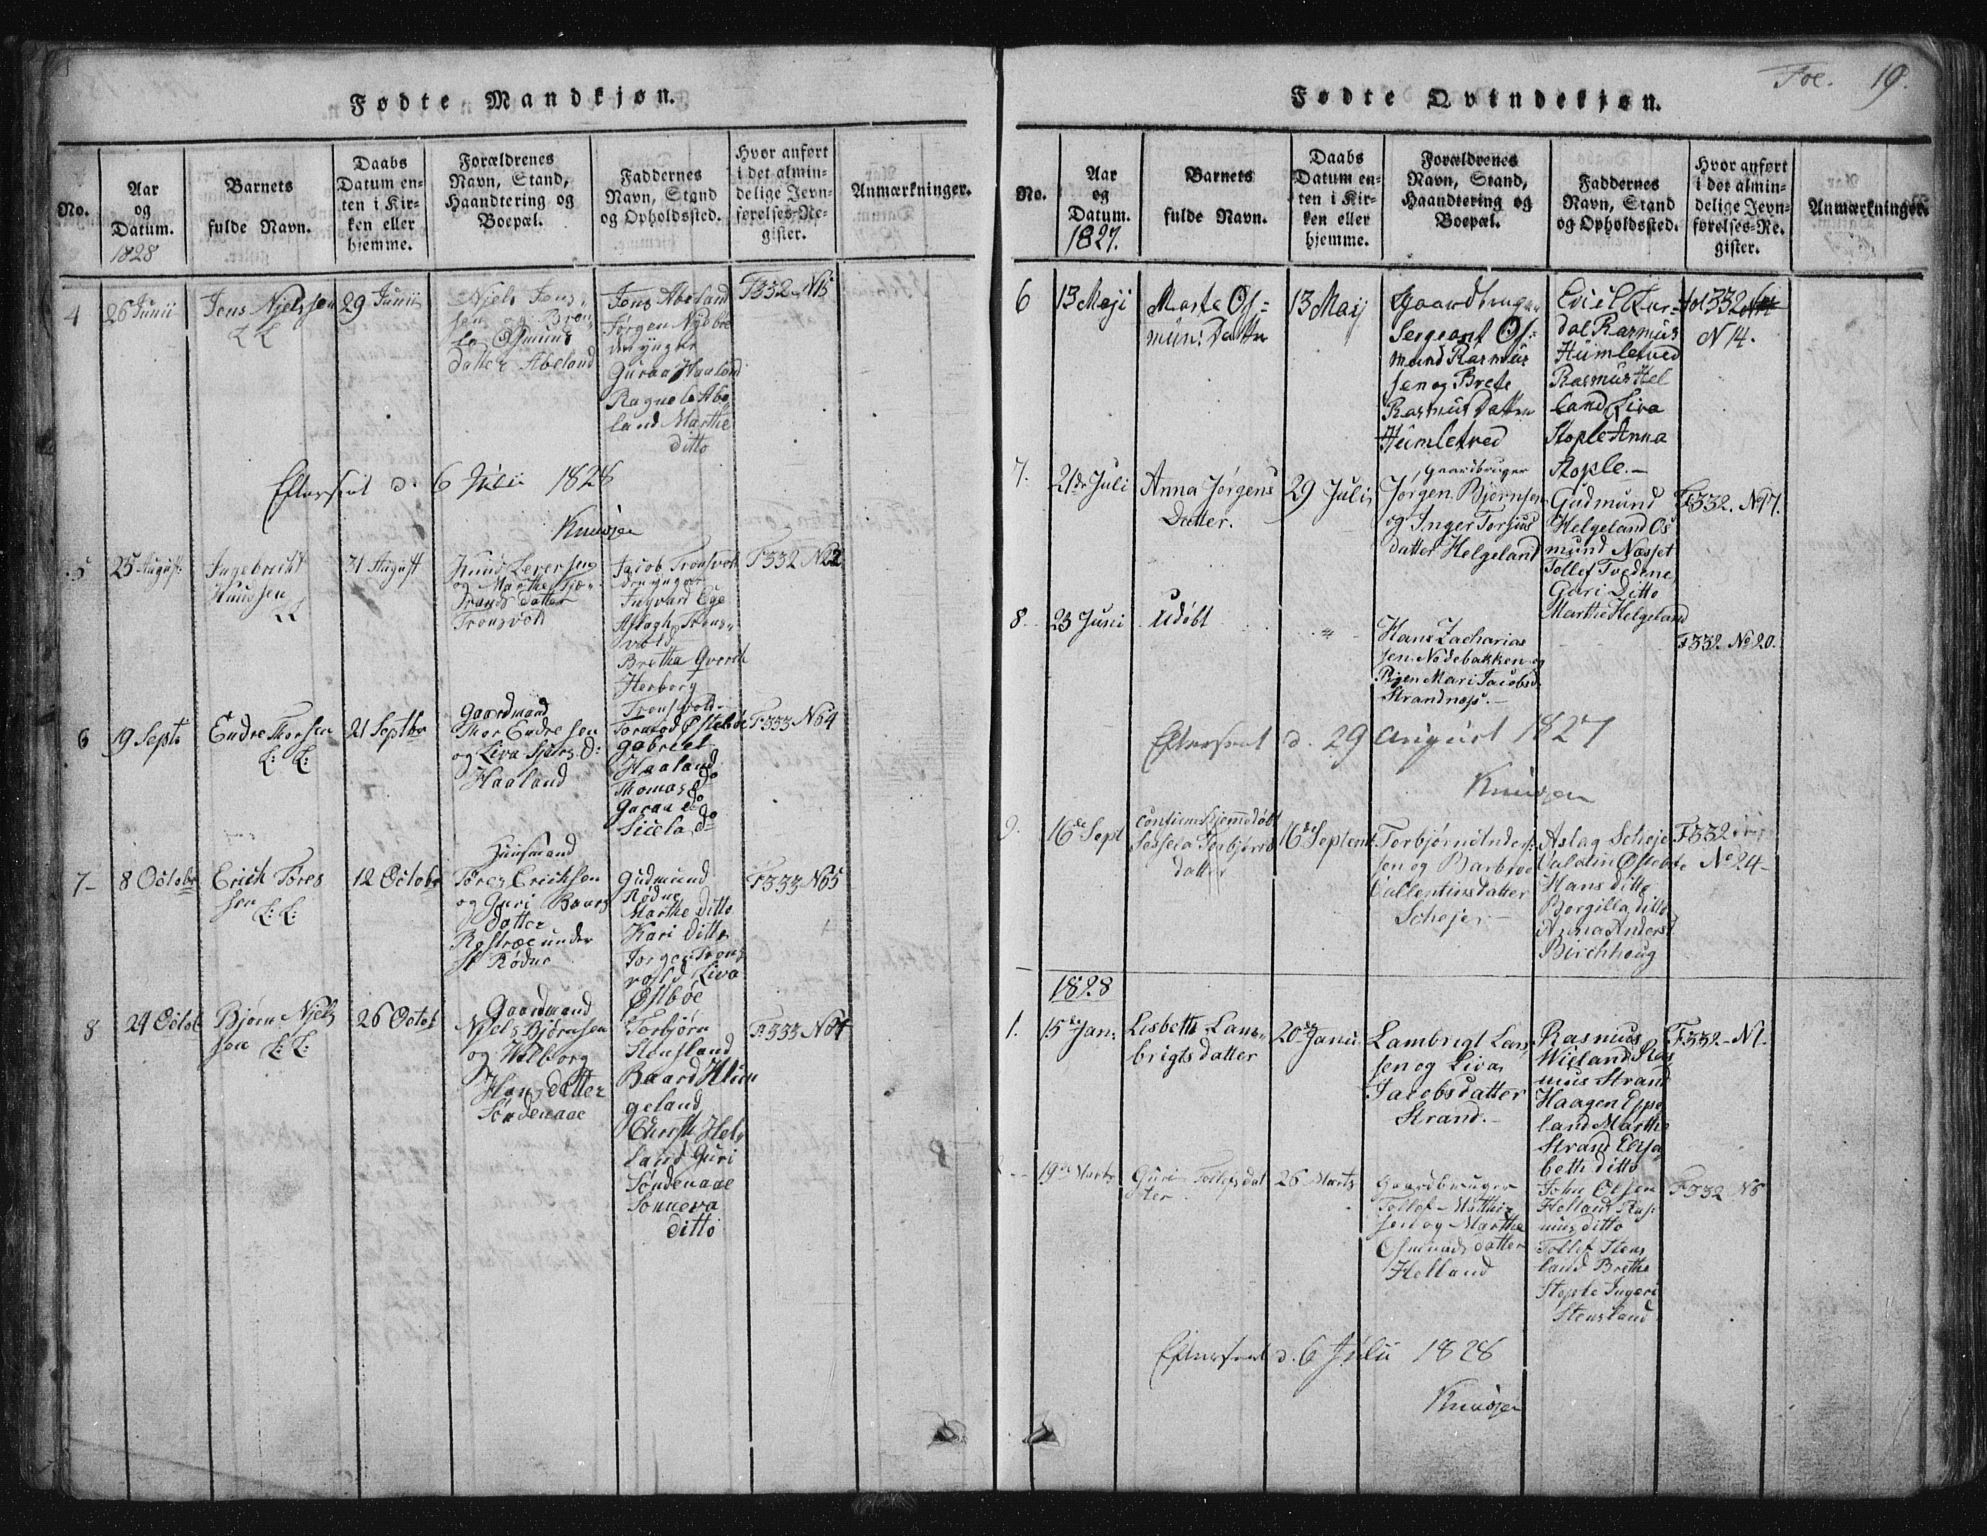 Fødte Mandkjøn.
No.
Aar
og
Datum.
1828
Barnets
fulde Navn.
Daabs
Datum en-
ten i Kir-
ken eller
hjemme.
Forældrenes
Navn, Stand,
Haandtering og
Boepæl.
Faddernes
Navn, Stand
og Opholdssted.
Hvor anført
i det almin-
delige Jevn-
førelses-Re-
gister.
Anmærkninger.
4
26 Junii
Jens Njelssen
29 Junii
Niels Jens-
sen og Bren-
Osmunds
datter Abeland
Jens Abeland
Jørgen
den yngre
Guraa Haaland
Ragnele Abe
land Marthe
ditto
F332 N15
Efterseet d. 6 Julii 1828
Knudsen
5
25 August
Ingebricht
Knudsen
31 August
Knud Leversen
og Marthe Tjæ-
trands datter
Tronsvold
Jacob Tronsvold
den yngere
Ingvard Ege
Aslagh Trons-
vold
Bretha
Herborg
Tronsvold
F332 N22
6
19 Septb
Endre Thorsen
21 Septbr
Gaardmand
Thor Endresen
og Liva Sjurs D:
Haaland
Tormod Østebøe
gabriel
Haaland
Thomas do
Guraa do
Sicela do
F333 N64
7-
8 Octobr
Erich Tøres
sen
12 Octobr
Huusmand
Tøres Ericksen
og Guri Baars
datter
Røstræe under
st Rødne
Gudmund
Rødne
Marthe ditto
Kari ditto
Jørgen Trons
vold Liva
Østbøe
F333 N65
8
24 Octob
Bjørn Njels
sen
26 Octob
Gaardmand
Njels Bjørnsen
og Wilborg
Hans datter
Søndenaae
Torbjørn
Stensland
Baard Klun
geland
Chersti Hel
land Guri
Søndenaae
Sønneva
ditto
F333 N64
Foe. 19.
Fødte Qvindekjøn.
No.
Aar
og
Datum.
1827.
Barnets
fulde Navn.
Daabs
Datum en-
ten i Kir-
ken eller
hjemme.
Forældrenes
Navn, Stand,
Haandtering og
Boepæl.
Faddernes
Navn, Stand
og Opholdssted.
Hvor anført
i det almin-
delige Jevn-
førelses-Re-
gister.
Anmærkninger.
6
13 Maji
Marte Os-
mun: Datter
13 Maij
Gaardbruger
Sergeant Os-
mund Rasmus
sen og Brete
Rasmus Datter
Humletved
Rasmus
Humletved
Rasmus Hel
land Liva
Stople Anna
Stople.-
fol 332
N 14.
7.
21de Juli
Anna Jørgens
Datter.
29 Juli
Gaardbruger
Jørgen Bjørnsen
og Inger Torjus
datter Helgeland
Gudmund
Helgeland Os
mund Næsset
Tollef Tvedene
Guri Ditto
Marthe Helgeland
F332. N17.
8.
23 Juni
Udøbt
"
Hans Zacharias
sen Nødebakken og
Pigen Mari Jacobsd
Strandnæs.-
F332. No 20.
Eftersent d. 29 August 1827
Knudsen
9.
16de Sept
confirm: Hjemmedøbt
Sessela Torbjørns
datter
16de Septem:
Torbjørn Anders-
sen og Barbroe
Vallentins datter
Schejer-
Aslag Scheje
Valentin Østebøe
Hans ditto
Borgilla ditto
Anna Anders d
Birchhoug
F332
No 24-
1828
1.
15de Jan:
Lisbeth Lam-
brigts datter
20de Janu:
Lambrigt Lars
sen og Liva
Jacobs datter
Strand.-
Rasmus
Wieland Ras
mus Strand
Haagen Eppe
land Marthe
Strand Elisa
beth ditto
F332- N1-
19de Marts
Guri Tollefsdat
ter
26 Marts
Gaardbruger
Tollef Mathi-
sen og Marthe
Osmunds datter
Helland
John Olsen
Helland Ras
mus ditto
Tollef Stens
land Brethe
Stople Ingeri
Stensland
F332 N6
Eftersent d. 6 Julii 1828
Knudsen